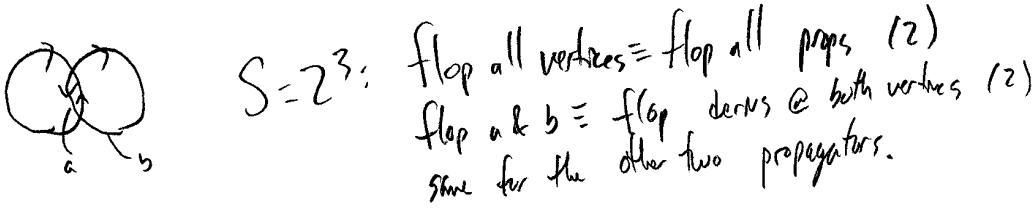 S=2³: flop all vertices ≡ flop all props (2)
flop a & b ≡ flop derivs @ both vertices (2)
same for the other two propagators.
a b